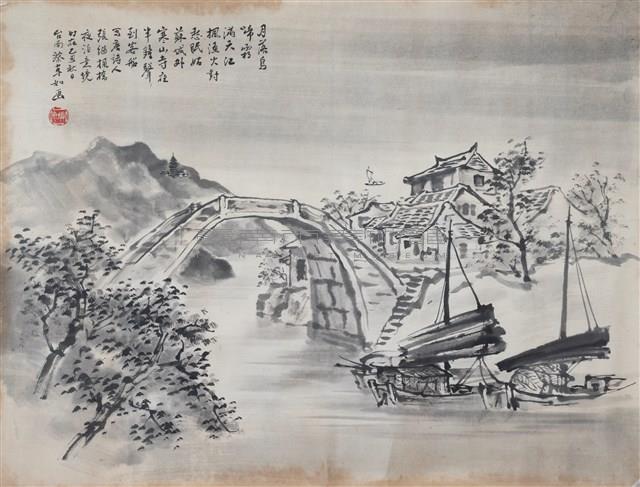 月落烏
啼霜
滿天江
楓漁火對
愁眠姑
蘇城外
寒山寺夜
半鐘聲
到客船
寫唐詩人
張繼楓橋
夜泊意境
時在秋日
台南蔡草如画